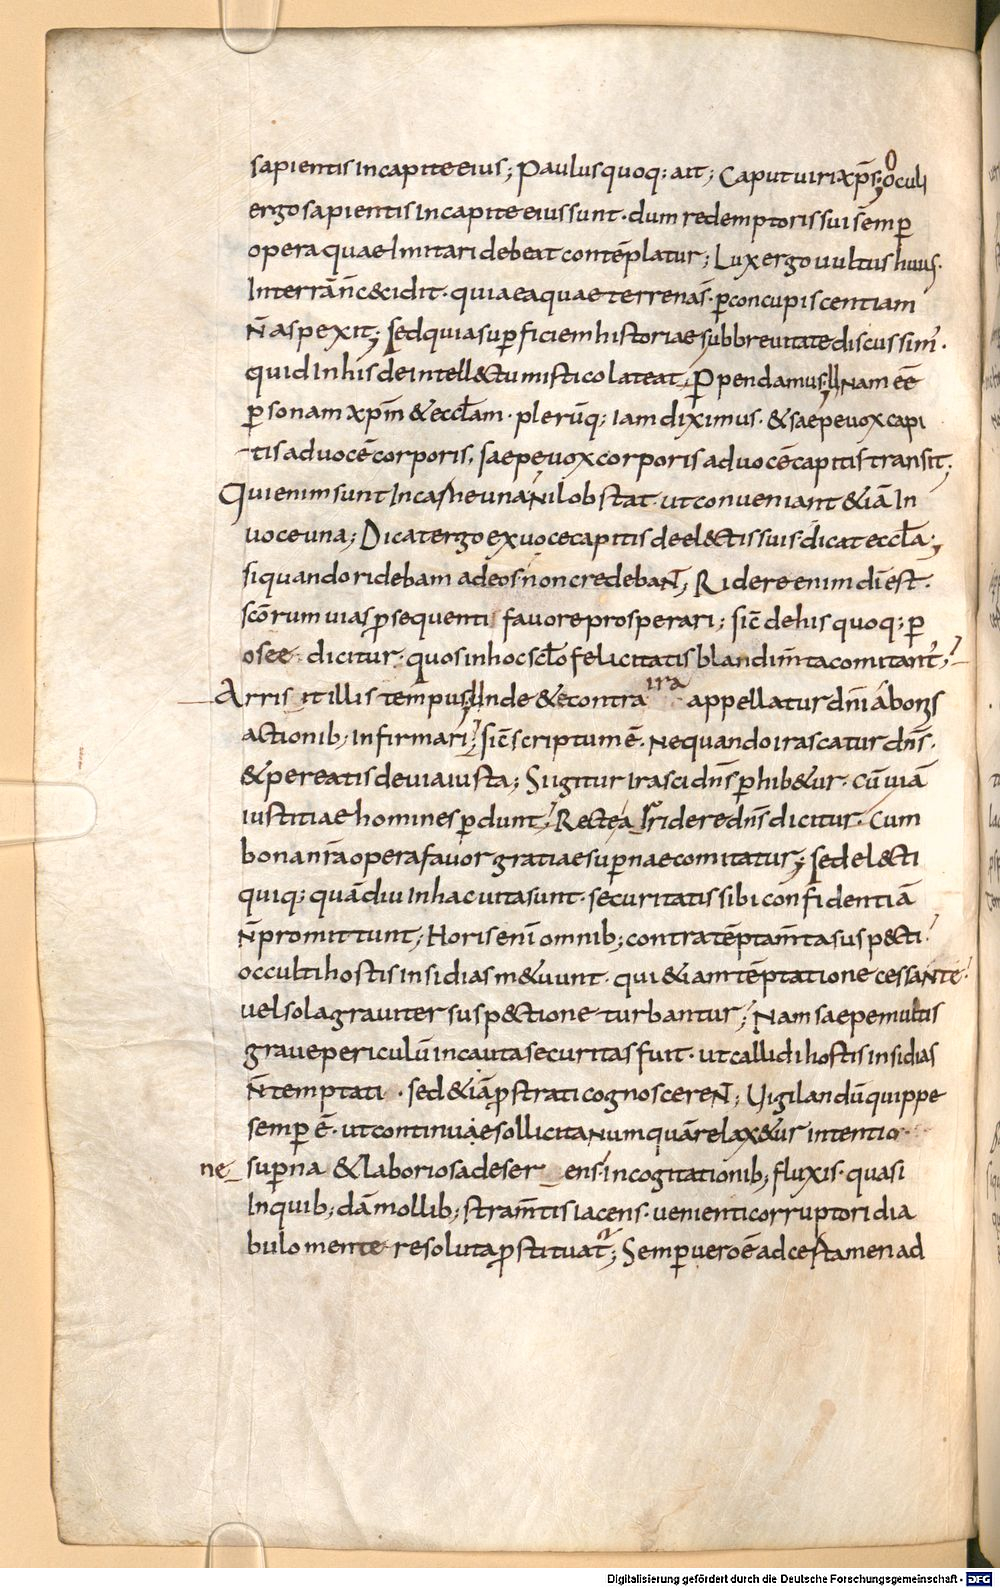 sapientis incapite eius; Paulus quoq; ait; Caput uiri xp̄s; Oculi
ergo sapientis incapite eius sunt · dum redemptoris sui semp̄
opera quae imitari debeat contēplatur; Lux ergo uultus huius ·
Interrā n̄ c&cidit · quia ea quae terrena s̄ · p̄ concupiscentiam
N̄ aspexit; Sed quia sup̄ficiem historiae sub breuitate discussim' ·
quid In his de intell&tu mistico lateat, P̄pendamus; Nam eē
p̄sonam xp̄m & eccl̄am · plerūq; iam diximus · & saepe uox capi
tis ad uocē corporis, saepe uox corporis ad uocē capitis transit;
Qui enim sunt In carne una Nil obstat · ut conueniant &iā In
uoce una; Dicat ergo ex uoce capitis de el&tis suis · dicat eccl̄a;
si quando ridebam ad eos · non credebaN̄; Ridere enim dī est ·
sc̄orum uias p̄sequenti fauore prosperari; sic̄ de his quoq; p̄
osee dicitur · quos in hoc scl̄o felicitatis blandim̄ta comitant';
Arris it illis tempus; Unde & econtra ira appellatur dn̄i á bonis
actionib; infirmari; Sic̄ scriptum ē · Nequando irascatur dn̄s ·
& pereatis de uia iusta; Si igitur irasci dn̄s p̄hib&ur · cū uiā
iustitiae homines p̄dunt; Recte ridere dn̄s dicitur · Cum
bona nr̄a opera fauor gratiae sup̄nae comitatur; Sed el&ti
quiq; quādiu In hac uita sunt · securitatis sibi confidentiā
N̄ promittunt; Horis enī omnib; contra tēptam̄ta susp&ti
occulti hostis insidias m&uunt · qui &iam tēptatione cessante ·
uel sola grauiter susp&tione turbantur; Nam saepe multis
graue periculū incauta securitas fuit · ut callidi hostis insidias
N̄ temptati · sed &iā p̄strati cognoscereN̄; Uigilandū quippe
semp̄ ē · ut continuae sollicita Numquā relax&ur intentio ·
ne
sup̄na & laboriosa deser ens · in cogitationib; fluxis · quasi
Inquib; dā mollib; stram̄tis iacens · uenienti corruptori dia
bulo mente resoluta p̄stituat'; Semp̄ uero ē ad certamen ad
Digitalisierung gefördert durch die Deutsche Forschungsgemeinschaft - DFG